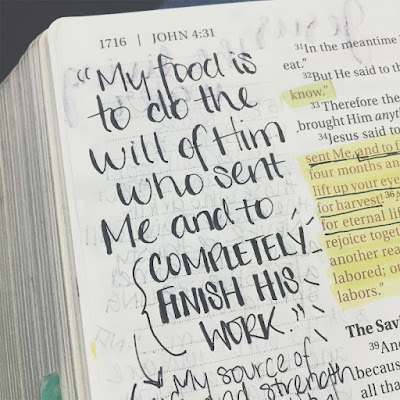 1716 | JOHN 4:31
"My food is
to do the
will of Him
who sent
Me and to
COMPLETELY
FINISH HIS
WORK."
My source of
and strength
31In the meantime
eat."
32But He said to th
know."
33Therefore the
brought Him anyt
34Jesus said to
sent Me, and to f
four months and
lift up your eye
for harvest! 36A
for eternal lif
rejoice toget
another rea
labored; ot
labors."
The Savi
39And
because
all that